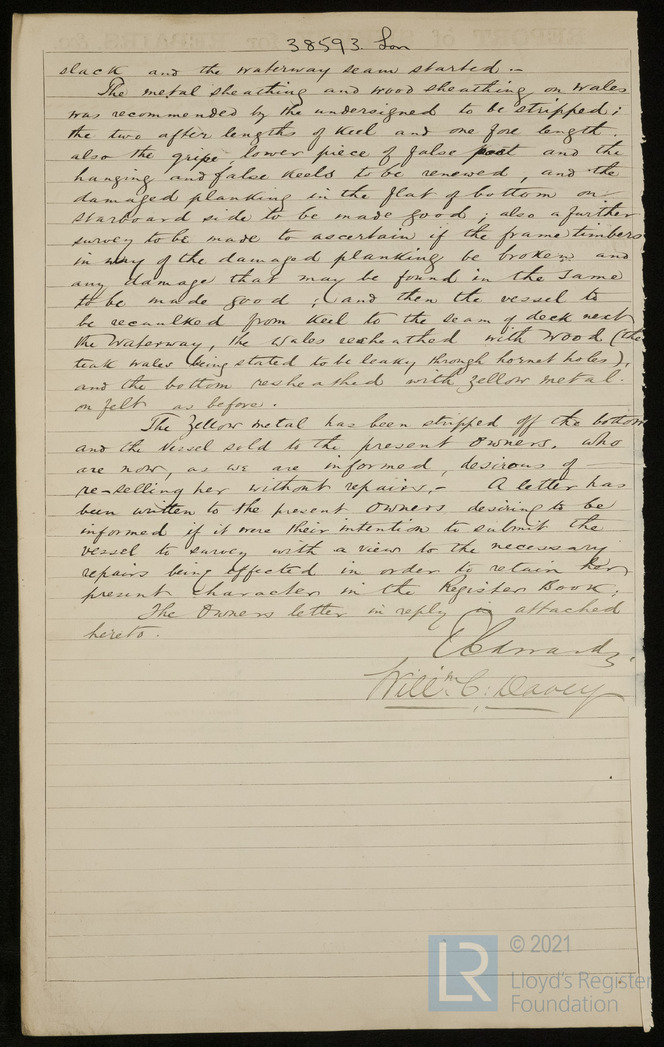 38593. Lon
slack and the waterway seam started –
The metal sheathing and wood sheathing on wales
was recommended by the undersigned to be stripped;
the two after lengths of keel and one fore length.
also the gripe, lower piece of false post and the
hanging and false keels to be renewed, and the
damaged planking in the flat of bottom on
starboard side to be made good; also a further
survey to be made to ascertain if the frame timbers
in way of the damaged planking be broken and
any damage that may be found in the same
to be made good; and then the vessel to
be recaulked from keel to the seam of deck next
the waterway, the wales resheathed with wood (the
teak wales being stated to be leaky through hornet holes),
and the bottom resheathed with yellow metal.
on felt as before.
The Yellow metal has been stripped off the bottom
and the vessel sold to the present Owners, who
are now, as we are informed, desirous of
re-selling her without repairs. – A letter has
been written to the present Owners desiring to be
informed if it were their intention to submit the
vessel to survey with a view to the necessary
repairs being effected in order to retain her
present character in the Register Book.
The Owners letter in reply is attached
hereto.
Edwards
Willm. C. Davey
LR © 2021
Lloyd's Register
Foundation